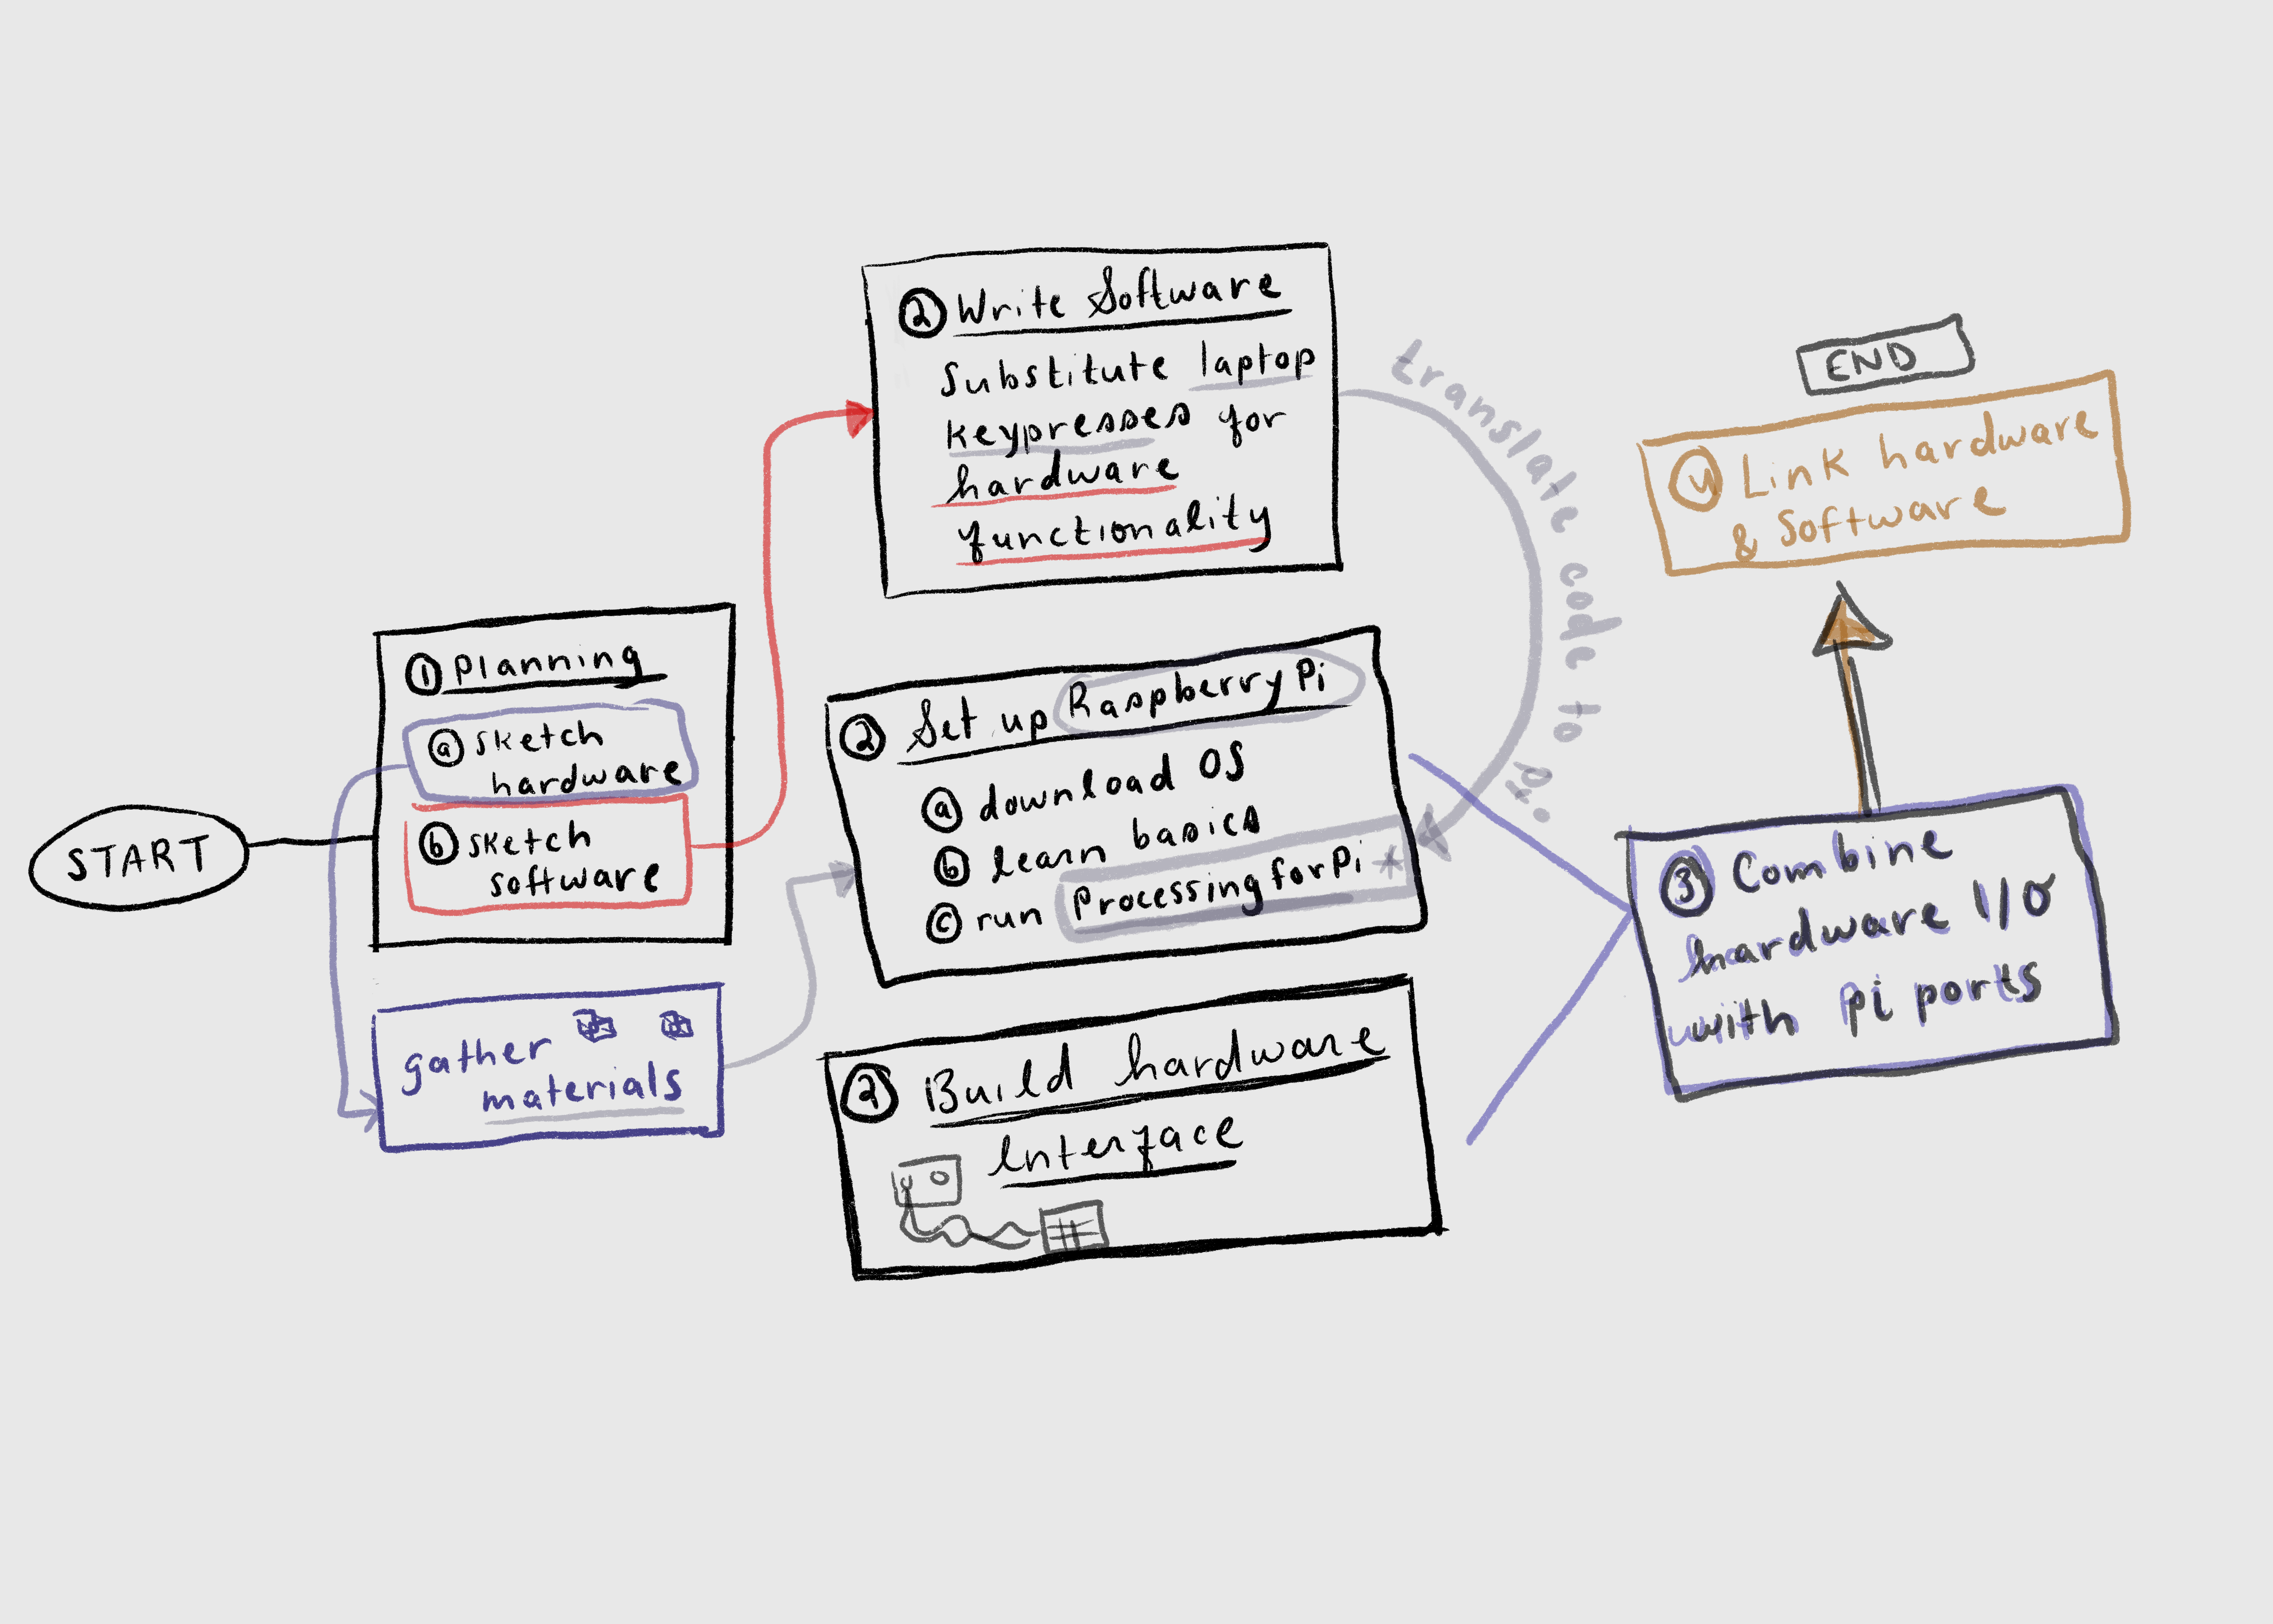 START
① Planning
ⓐ sketch
hardware
ⓑ sketch
software
gather
materials
② Write Software
Substitute laptop
keypresses for
hardware
functionality
translate code to pi
② Set up Raspberry Pi
ⓐ download OS
ⓑ learn basics
ⓒ run Processing for Pi *
② Build hardware
Interface
③ Combine
hardware I/O
with pi ports
END
④ Link hardware
& Software